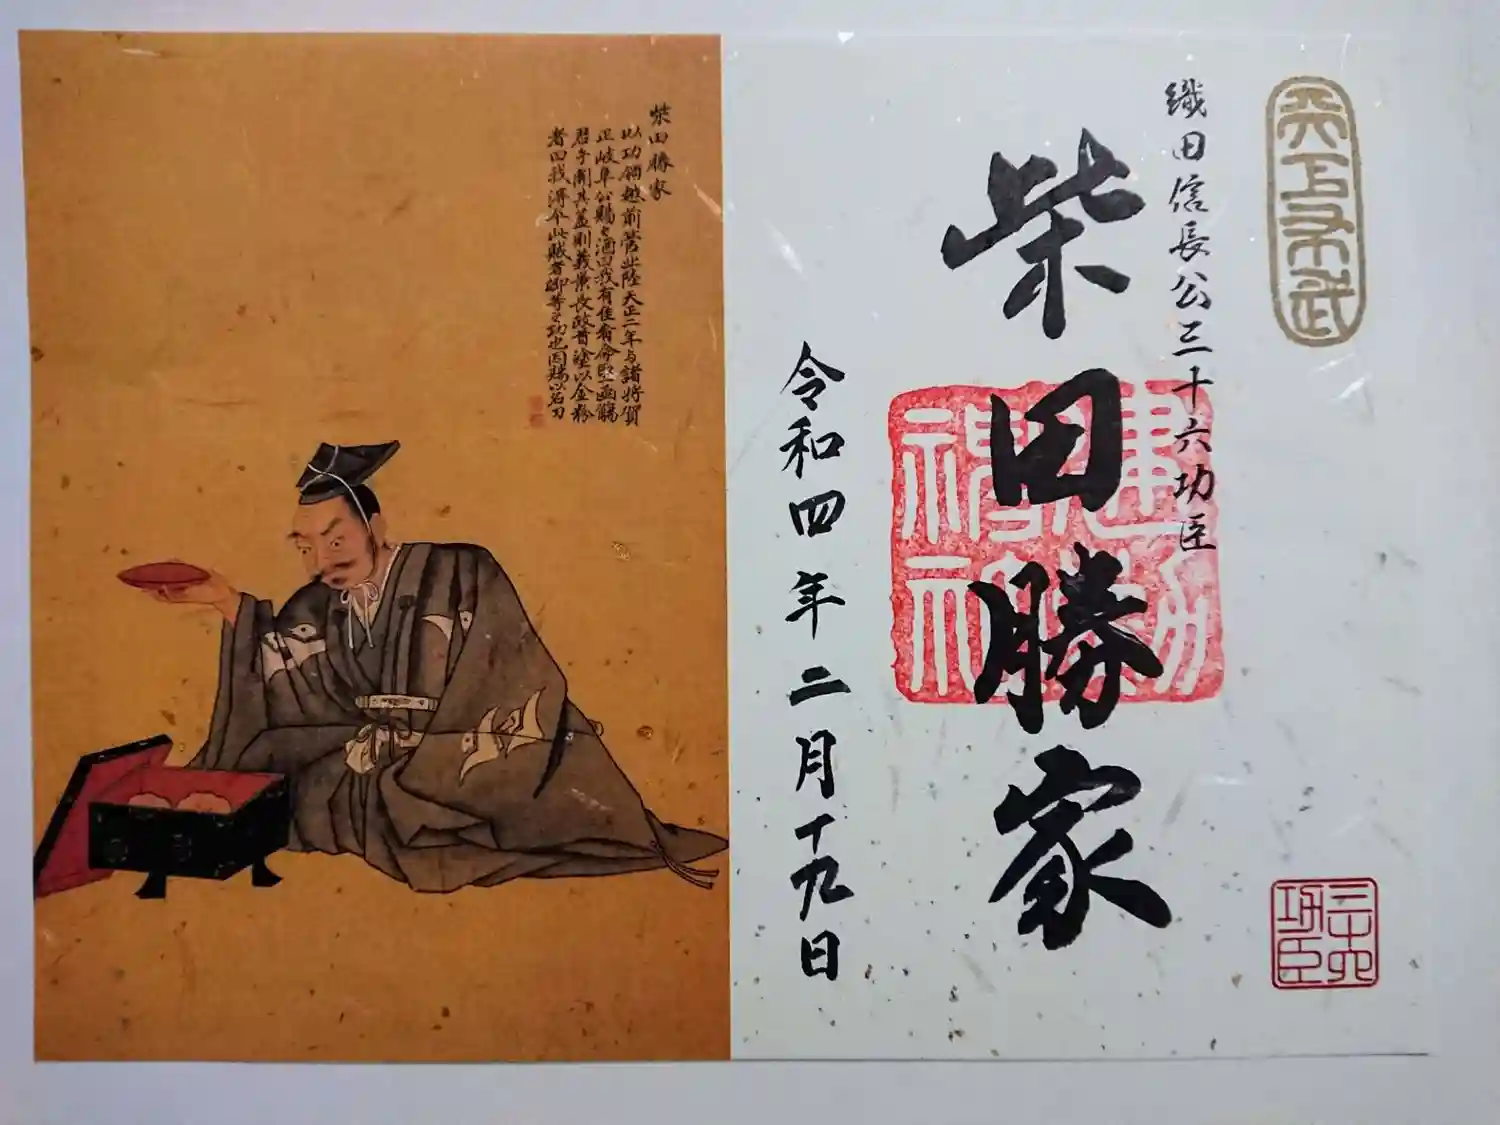 天下布武
織田信長公三十六功臣
柴田勝家
建勲神社
令和四年二月十九日
三十六功臣
柴田勝家
以功領越前管北陸天正二年与諸将賀
正岐阜公賜之酒曰我有佳肴命
開其蓋則義景長政首塗以金粉
者曰我得此賊者卿等之功也因賜以名刀